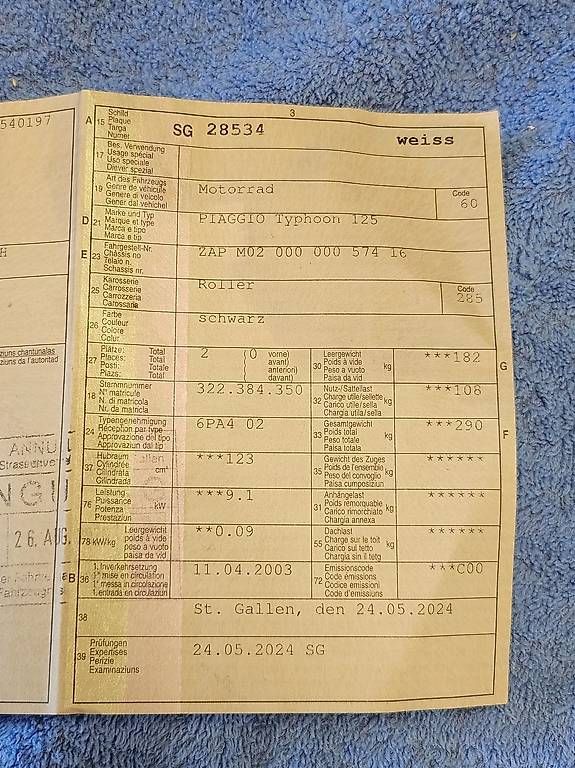 540197
3
A 15 Schild
Plaque
Targa
Numer
SG 28534 weiss
17 Bes. Verwendung
Usage spécial
Uso speciale
Diever spezial
19 Art des Fahrzeugs
Genre de véhicule
Genere di veicolo
Gener dal vehichel
Motorrad
Code
60
D 21 Marke und Typ
Marque et type
Marca e tipo
Marca e tip
PIAGGIO Typhoon 125
E 23 Fahrgestell-Nr.
Châssis no
Telaio n.
Schassis nr.
ZAP M02 000 000 574 16
25 Karosserie
Carrosserie
Carrozzeria
Carossaria
Roller
Code
285
26 Farbe
Couleur
Colore
Colur
schwarz
27 Plätze: Total
Places: Total
Posti: Totale
Plazs: Total
2 (0 vorne)
avant)
anteriori)
davant)
30 Leergewicht
Poids à vide
Peso a vuoto
Paisa da vid
kg
***182
G
18 Stammnummer
N° matricule
N. di matricola
Nr. da matricla
322.384.350
32 Nutz-/Sattellast
Charge utile/sellette
Carico utile/sella
Chargia utila/sella
kg
***108
24 Typengenehmigung
Réception par type
Approvazione del tipo
Approvaziun dal tip
6PA4 02
33 Gesamtgewicht
Poids total
Peso totale
Paisa totala
kg
***290
F
37 Hubraum
Cylindrée
Cilindrata
Cilindrada
cm³
***123
35 Gewicht des Zuges
Poids de l'ensemble
Peso del convoglio
Paisa cumposiziun
kg
******
76 Leistung
Puissance
Potenza
Prestaziun
kW
***9.1
31 Anhängelast
Poids remorquable
Carico rimorchiato
Chargia annexa
kg
******
78 kW/kg Leergewicht
poids à vide
peso a vuoto
paisa da vid
**0.09
55 Dachlast
Charge sur le toit
Carico sul tetto
Chargia sin il tetg
kg
******
B 36 1. Inverkehrsetzung
1re mise en circulation
1a messa in circolazione
1. entrada en circulaziun
11.04.2003
72 Emissionscode
Code émissions
Codice emissioni
Code d'emissions
***C00
38 St. Gallen, den 24.05.2024
39 Prüfungen
Expertises
Perizie
Examinaziuns
24.05.2024 SG
H
ziuns chantunalas
ziuns da l'autoritad
ANNU
Strassenver
NGÜ
26. AUG.